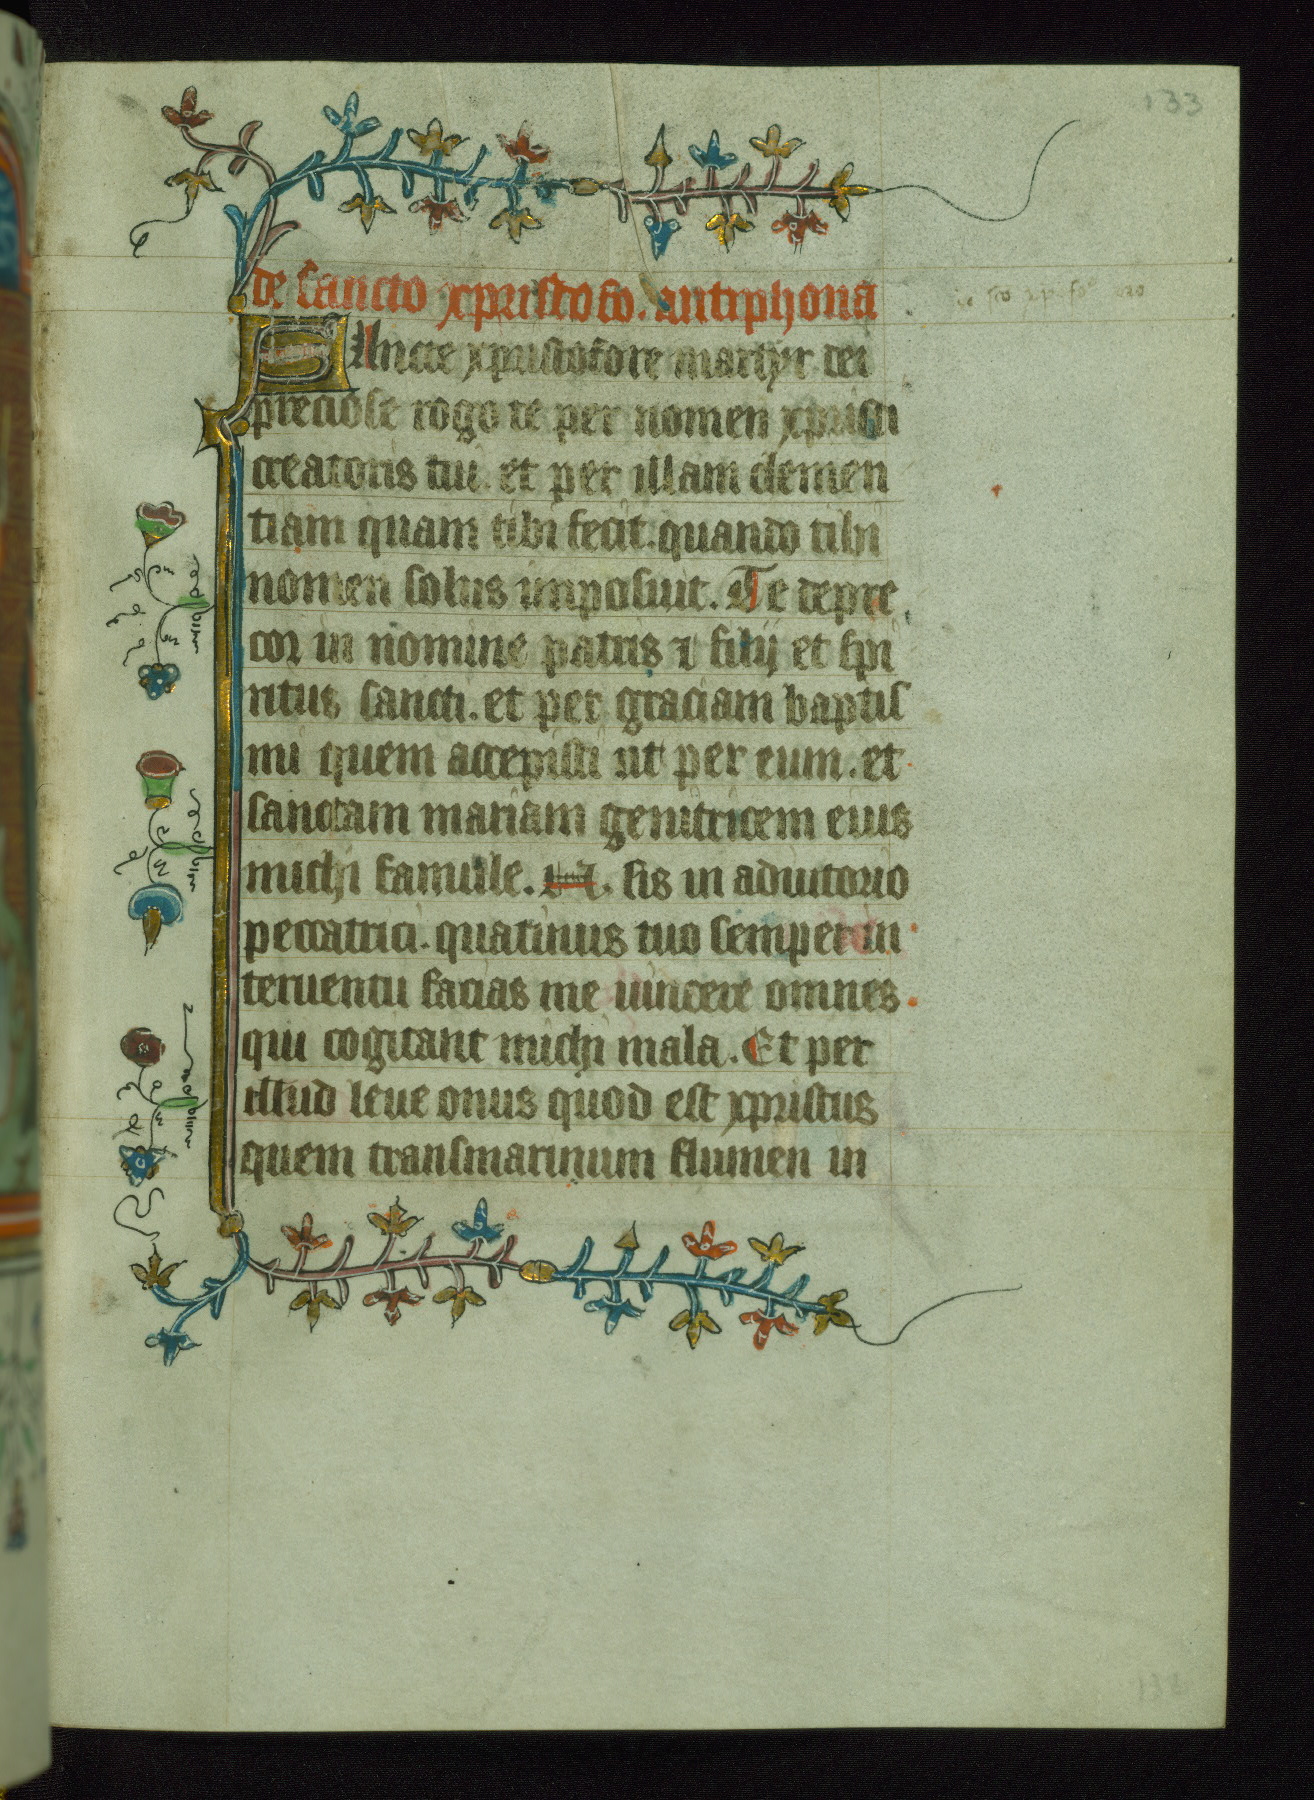 133
de sancto xpristofo. antiphona
SAncte xpristofore martyr dei
preciose rogo te per nomen xpristi
creatoris tui. et per illam clemen
tiam quam tibi fecit. quando tibi
nomen solus imposuit. Te depre
cor in nomine patris ⁊ filij et spi
ritus sancti. et per graciam baptis
mi quem accepisti ut per eum. et
sanctam mariam genitricem eius
michi famule. sis in adiutorio
peccatrici. quatinus tuo semper in
teruentu facias me uincere omnes
qui cogitant michi mala. Et per
illud leue onus quod est xpristus
quem transmarinum flumen in